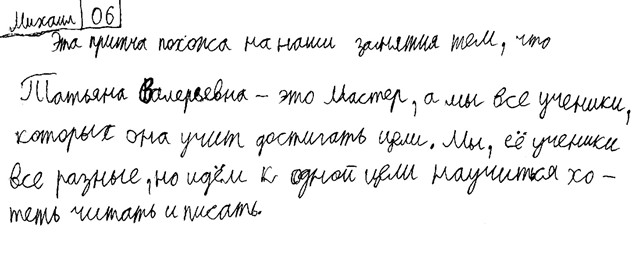 Михаил 06
Эта притча похожа на наши занятия тем, что
Татьяна Валерьевна – это Мастер, а мы все ученики,
которых она учит достигать цели. Мы, её ученики
все разные, но идём к одной цели научиться хо-
теть читать и писать.